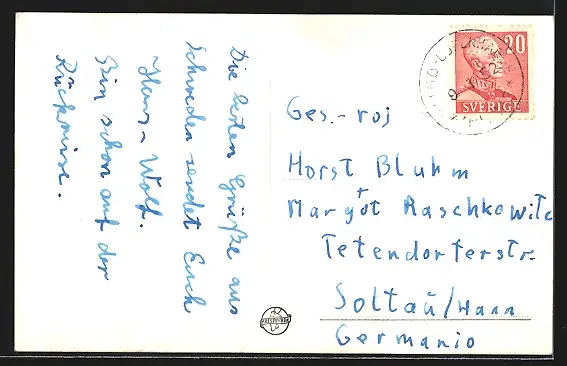 Die besten Grüße aus
Schweden sendet Euch
Hans-Wolf.
Bin schon auf der
Rückreise.
20
SVERIGE
Ges.-roj
Horst Bluhm
Margot Raschkowitc
Tetendorferstr.
Soltau/Hann
Germanio